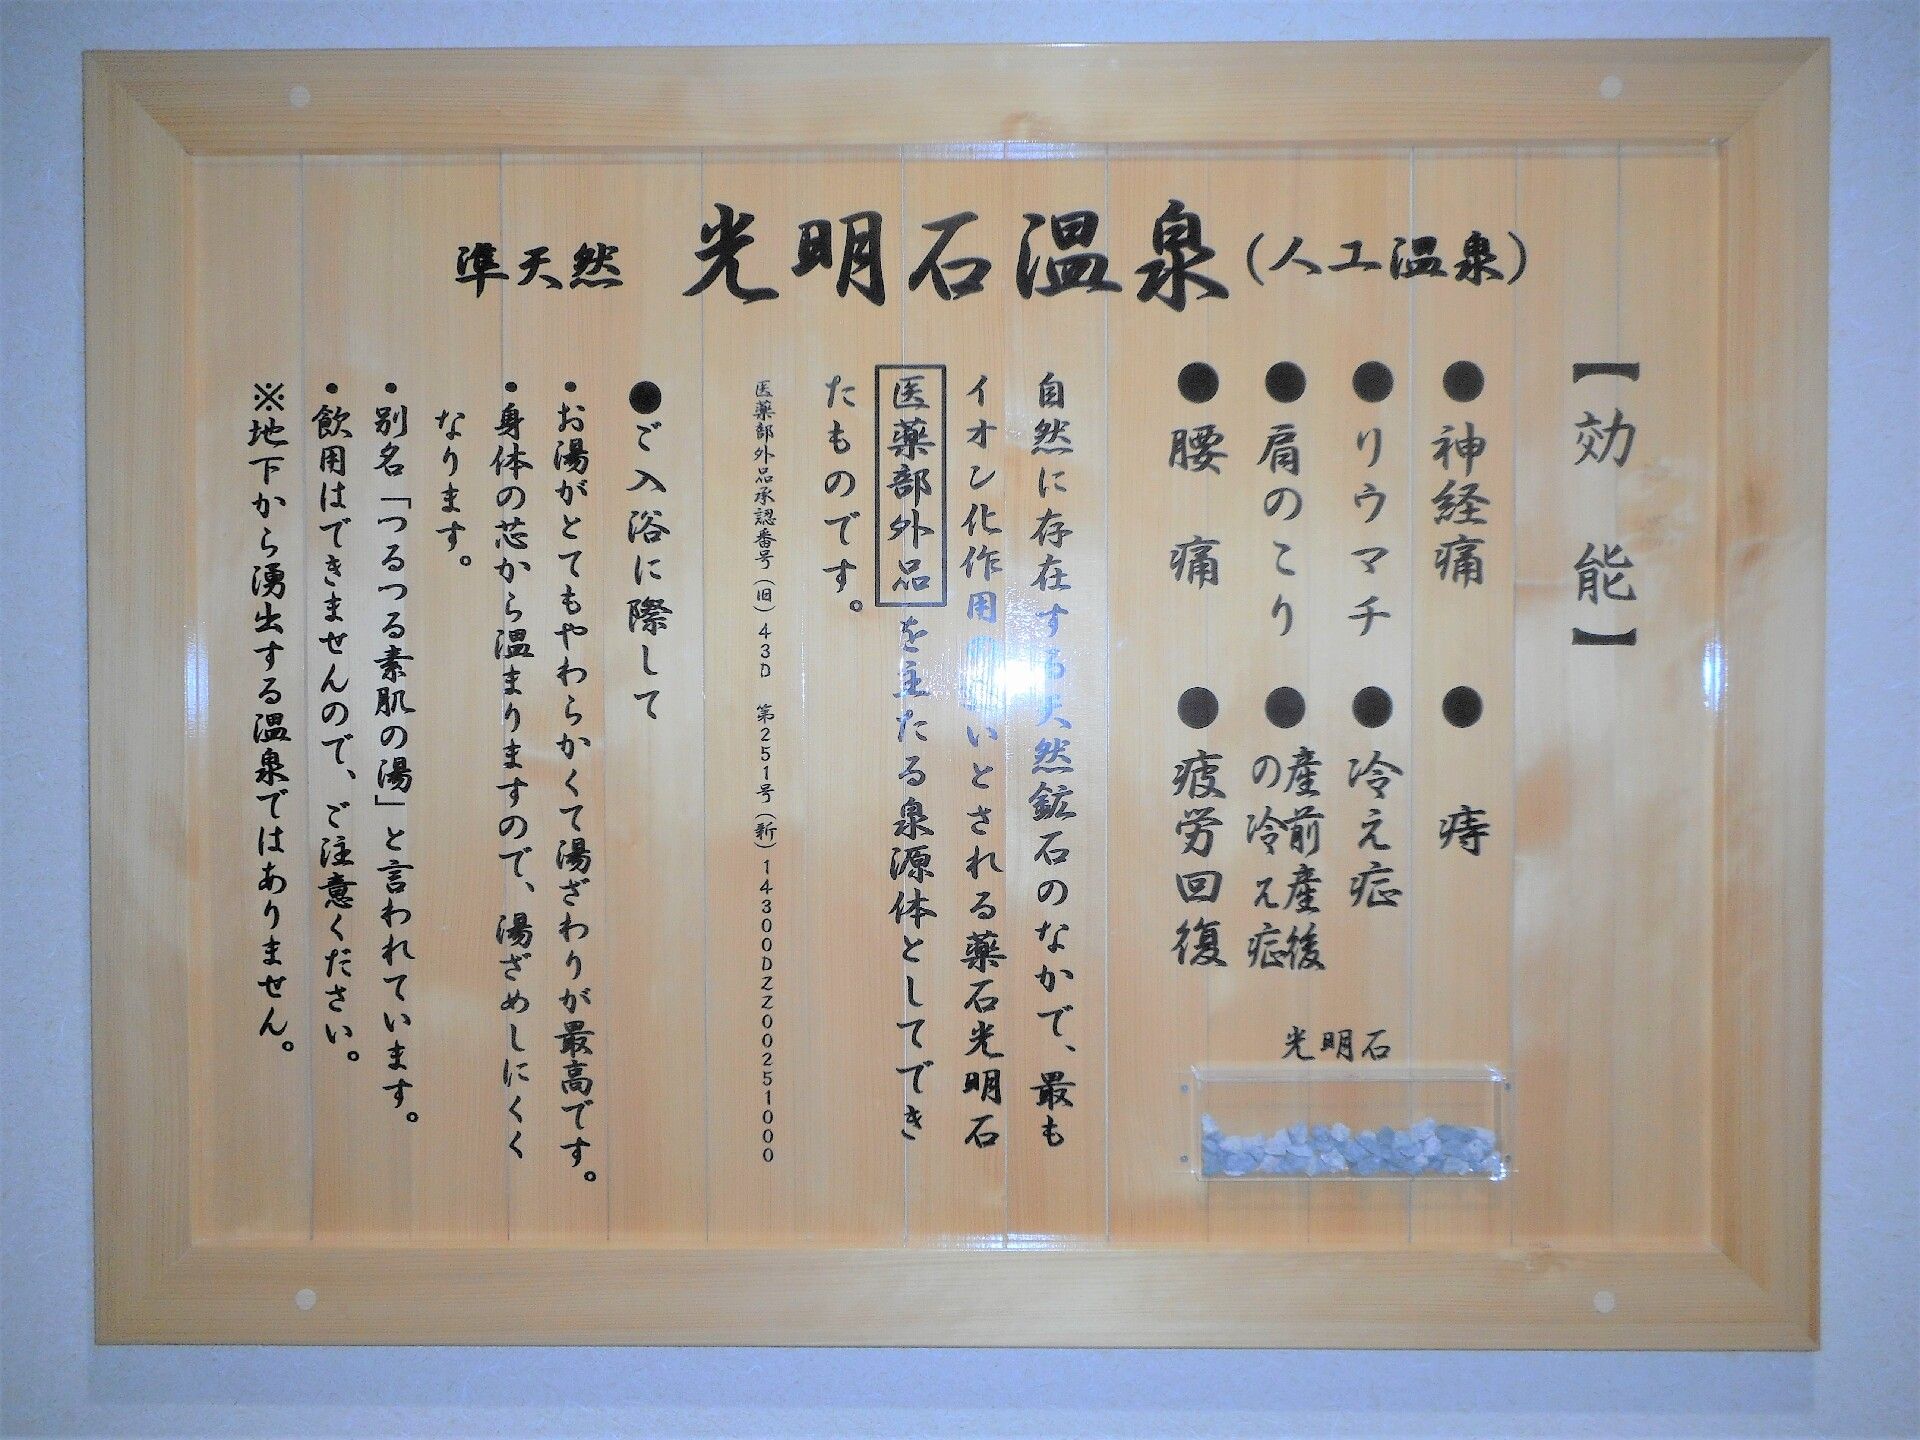 準天然 光明石温泉(人工温泉)
【効能】
●神経痛 ●痔
●リウマチ ●冷え症
●肩のこり ●産前産後の冷え症
●腰痛 ●疲労回復
光明石
自然に存在する天然鉱石のなかで、最も
イオン化作用 いとされる薬石光明石
医薬部外品を主たる泉源体としてでき
たものです。
医薬部外品承認番号(旧)43D 第251号(新)14300DZZ00251000
●ご入浴に際して
・お湯がとてもやわらかくて湯ざわりが最高です。
・身体の芯から温まりますので、湯ざめしにくく
なります。
・別名「つるつる素肌の湯」と言われています。
・飲用はできませんので、ご注意ください。
※地下から湧出する温泉ではありません。